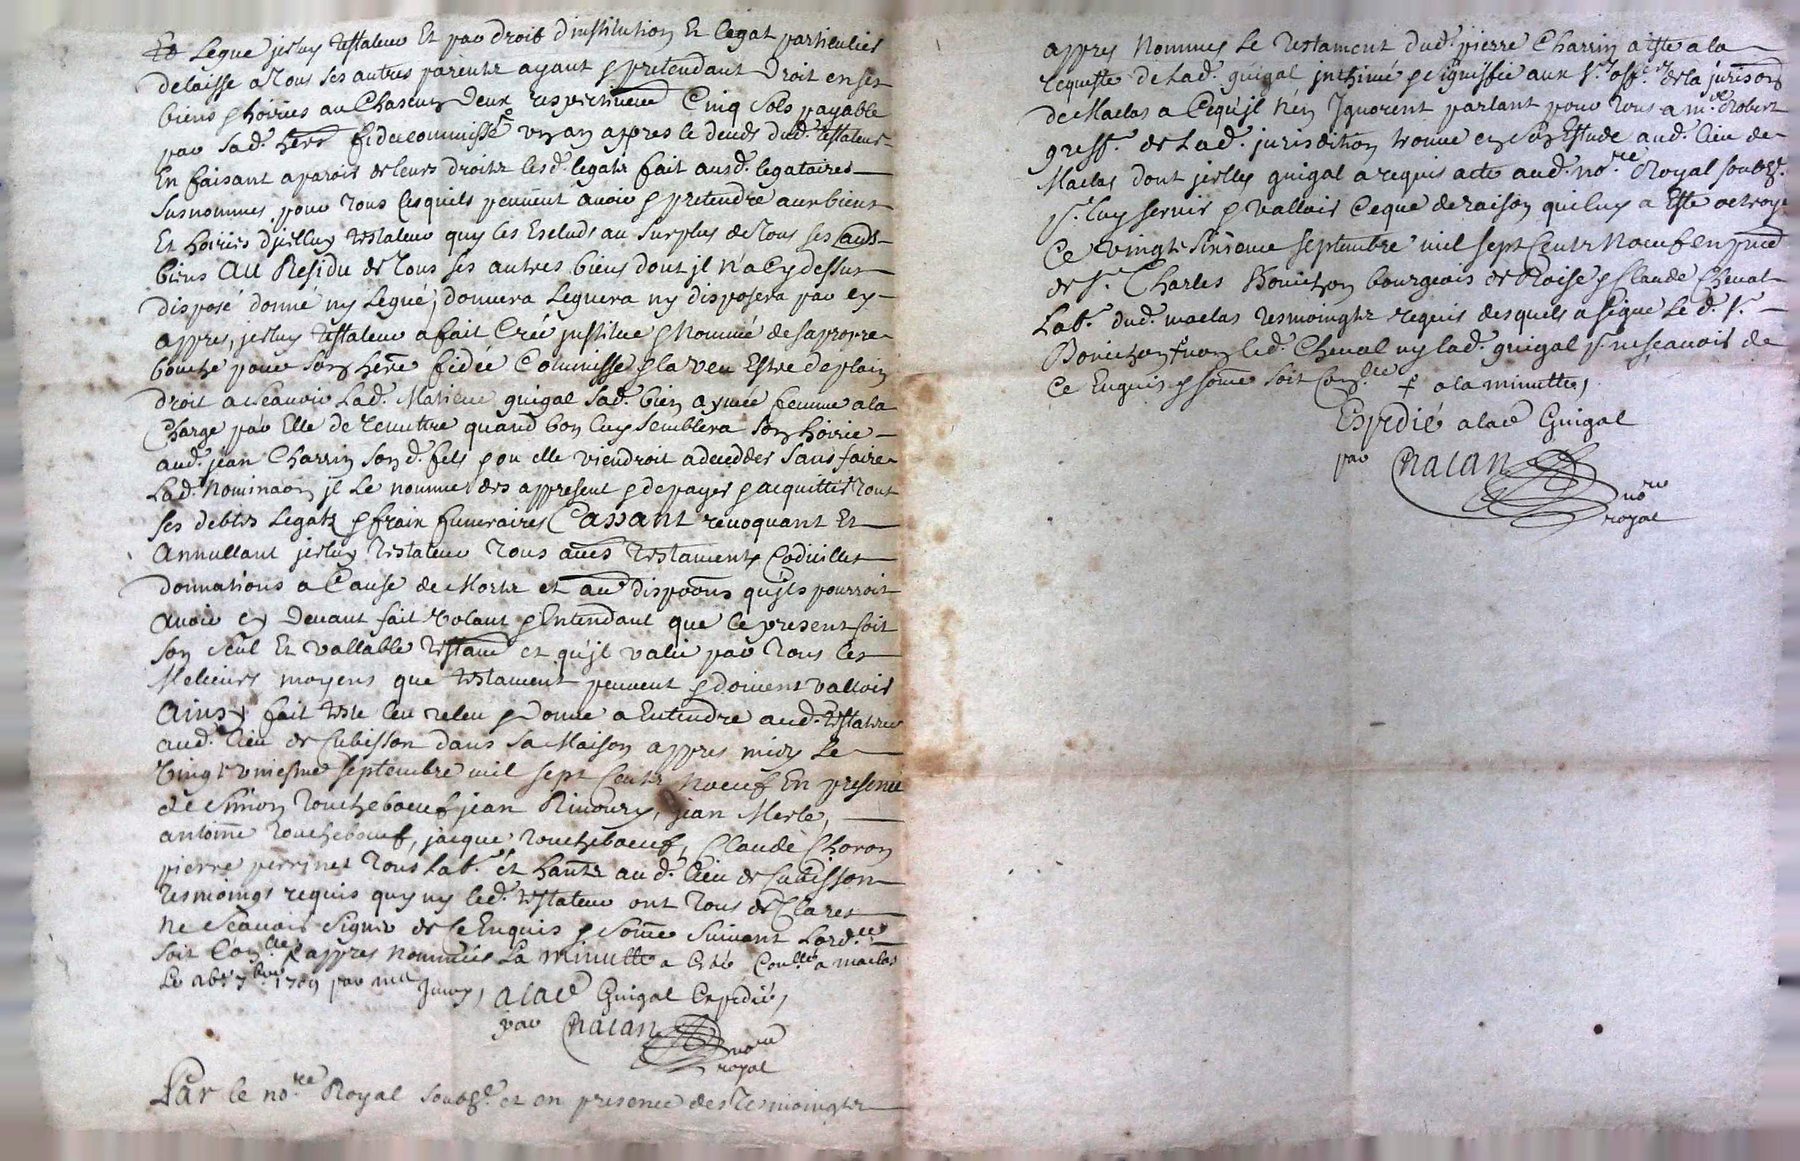 Legue jcelluy testateur Et par droit d'institution Et legat particulier
delaisse a tous ses autres parents ayant & pretendant droit en ses
biens & hoiries au Chascun deux respectivemt Cinq sols payable
par sad. hers fideicommisse un an appres le deceds dud. testateur
En faisant aparoir de leurs droits lesd. legats fait ausd. legataires
susnommes, pour tous lesquels peuvent avoir & pretendre aux biens
Et hoiries d'jcelluy testateur quy les Excluds au surplus de tous ses
biens Au Residu de tous ses autres biens dont jl n'a Cy dessus
disposé donné ny Legué, donnera Leguera ny disposera par cy
appres, jcelluy testateur a fait Créé jnstitue & Nommé de sa propre
bouche pour son here fidée Commisse & la veu Estre de plain
droit a scavoir Lad. guigal sad. bien aymée femme a la
Charge par Elle de remettre quand bon luy semblera son hoirie
aud. jean Charrin sond. fils & ou elle viendroit a decedder sans faire
Lad. Nominaon jl Le nomme des appresent & de payer & acquitter tout
ses debtes Legats & frais funeraires Cassant revoquant Et
Annullant jcelluy testateur tous aues testaments Codicilles
donnations a Cause de Morts et aue dispoons qu'jls pourroit
Avoir cy devant fait Volant & Entendant que le present soit
son seul Et vallable testamt et qu'jl valie par tous les
Melieurs moyens que testament peuvent & doivent valloir
Ainsy fait leu releu & donne a Entendre aud. testateur
aud. lieu de Cubisson dans sa Maison appres midy le
vingt uniesme septembre mil sept Cents noeuf En presence
de Simon toucheboeuf jean Rivoury, jean Merle,
antoine toucheboeuf, jacque toucheboeuf, Claude Choron
pierre perrinet tous Labr. et hants aud. lieu de Cubisson
tesmoings requis quy ny led. testateur ont tous declarer
ne scavoir signer de ce Enquis & somé suivant Lordce
soit Conlle & appres nommées La minutte a Esté Conllé a maclas
Le 7bre 1709 par me a lad Guigal Expedié,
par Chatan
nore
royal
Par le nore Royal soubzé et en presence des tesmoingts
appres Nommes Le testament dud. pierre Charrin a Esté a la
requeste de Lad. guigal jnthimé & signiffié aux Srs offrs de la jurison
de Maclas a Cequ'jl n'en Jgnorent parlant pour tous a me Robert
greffr. de Lad. jurisdition trouvé en son Estude aud. lieu de
Maclas dont jcelle guigal a requis acte aud. nore Royal soubzé.
pr. luy servir & valloir Ceque de raison qui luy a Esté octroyé
Ce vingt sixieme septembre mil sept Cents Noeuf En pnce
de Sr. Charles Bonichon bourgeois de Roise & Claude Cheval
Labr. dud. maclas tesmoingts requis desquels a signé Le d. Sr.
Bonichon & non led. Cheval ny lad. guigal pr ne scavoir de
Ce Enquis & somé soit Conlle & a la minutte,
Expedié a lad Guigal
par Chatan
nore
royal